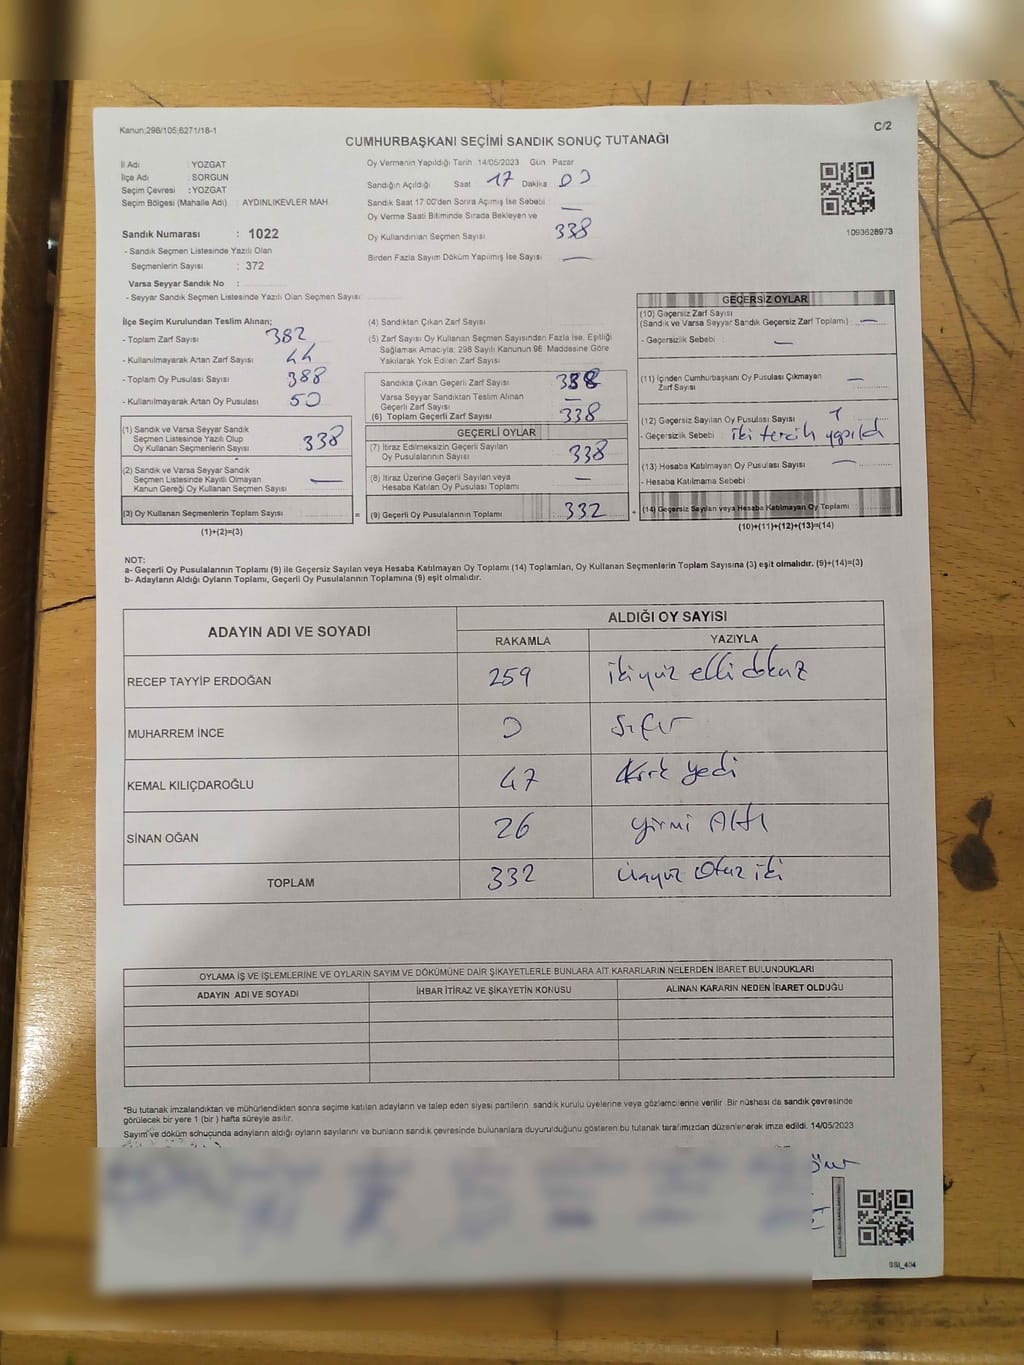 Kanun;298/105;6271/18-1
C/2
CUMHURBAŞKANI SEÇİMİ SANDIK SONUÇ TUTANAĞI
İl Adı : YOZGAT
İlçe Adı : SORGUN
Seçim Çevresi : YOZGAT
Seçim Bölgesi (Mahalle Adı) : AYDINLIKEVLER MAH
Sandık Numarası : 1022
- Sandık Seçmen Listesinde Yazılı Olan
Seçmenlerin Sayısı : 372
Varsa Seyyar Sandık No :
- Seyyar Sandık Seçmen Listesinde Yazılı Olan Seçmen Sayısı
Oy Vermenin Yapıldığı Tarih 14/05/2023 Gün Pazar
Sandığın Açıldığı Saat 17 Dakika 00
Sandık Saat 17:00'den Sonra Açımış İse Sebebi : —
Oy Verme Saati Bitiminde Sırada Bekleyen ve
Oy Kullandırılan Seçmen Sayısı 338
Birden Fazla Sayım Döküm Yapılmış İse Sayısı —
1093628973
İlçe Seçim Kurulundan Teslim Alınan;
- Toplam Zarf Sayısı 382
- Kullanılmayarak Artan Zarf Sayısı 44
- Toplam Oy Pusulası Sayısı 388
- Kullanılmayarak Artan Oy Pusulası 50
(1) Sandık ve Varsa Seyyar Sandık
Seçmen Listesinde Yazılı Olup
Oy Kullanan Seçmenlerin Sayısı 338
(2) Sandık ve Varsa Seyyar Sandık
Seçmen Listesinde Kayıtlı Olmayan
Kanun Gereği Oy Kullanan Seçmen Sayısı —
(3) Oy Kullanan Seçmenlerin Toplam Sayısı
(1)+(2)=(3)
(4) Sandıktan Çıkan Zarf Sayısı
(5) Zarf Sayısı Oy Kullanan Seçmen Sayısından Fazla İse, Eşitliği
Sağlamak Amacıyla; 298 Sayılı Kanunun 96. Maddesine Göre
Yakılarak Yok Edilen Zarf Sayısı
Sandıkta Çıkan Geçerli Zarf Sayısı 338
Varsa Seyyar Sandıktan Teslim Alınan
Geçerli Zarf Sayısı —
(6) Toplam Geçerli Zarf Sayısı 338
GEÇERLİ OYLAR
(7) İtiraz Edilmeksizin Geçerli Sayılan
Oy Pusulalarının Sayısı 338
(8) İtiraz Üzerine Geçerli Sayılan veya
Hesaba Katılan Oy Pusulası Toplamı —
= (9) Geçerli Oy Pusulalarının Toplamı 332 +
GEÇERSİZ OYLAR
(10) Geçersiz Zarf Sayısı
(Sandık ve Varsa Seyyar Sandık Geçersiz Zarf Toplamı) —
- Geçersizlik Sebebi : —
(11) İçinden Cumhurbaşkanı Oy Pusulası Çıkmayan
Zarf Sayısı —
(12) Geçersiz Sayılan Oy Pusulası Sayısı
- Geçersizlik Sebebi : iki tercih yapıldı
(13) Hesaba Katılmayan Oy Pusulası Sayısı —
- Hesaba Katılmama Sebebi :
(14) Geçersiz Sayılan veya Hesaba Katılmayan Oy Toplamı
(10)+(11)+(12)+(13)=(14)
NOT:
a- Geçerli Oy Pusulalarının Toplamı (9) ile Geçersiz Sayılan veya Hesaba Katılmayan Oy Toplamı (14) Toplamları, Oy Kullanan Seçmenlerin Toplam Sayısına (3) eşit olmalıdır. (9)+(14)=(3)
b- Adayların Aldığı Oyların Toplamı, Geçerli Oy Pusulalarının Toplamına (9) eşit olmalıdır.
ADAYIN ADI VE SOYADI
ALDIĞI OY SAYISI
RAKAMLA YAZIYLA
RECEP TAYYİP ERDOĞAN 259 ikiyüz elli dokuz
MUHARREM İNCE 0 Sıfır
KEMAL KILIÇDAROĞLU 47 Kırk yedi
SİNAN OĞAN 26 yirmi Altı
TOPLAM 332 üçyüz otuz iki
OYLAMA İŞ VE İŞLEMLERİNE VE OYLARIN SAYIM VE DÖKÜMÜNE DAİR ŞİKAYETLERLE BUNLARA AİT KARARLARIN NELERDEN İBARET BULUNDUKLARI
ADAYIN ADI VE SOYADI İHBAR İTİRAZ VE ŞİKAYETİN KONUSU ALINAN KARARIN NEDEN İBARET OLDUĞU
*Bu tutanak imzalandıktan ve mühürlendikten sonra seçime katılan adayların ve talep eden siyasi partilerin sandık kurulu üyelerine veya gözlemcilerine verilir. Bir nüshası da sandık çevresinde
görülecek bir yere 1 (bir) hafta süreyle asılır.
Sayım ve döküm sonucunda adayların aldığı oyların sayılarını ve bunların sandık çevresinde bulunanlara duyurulduğunu gösteren bu tutanak tarafımızdan düzenlenerek imza edildi. 14/05/2023